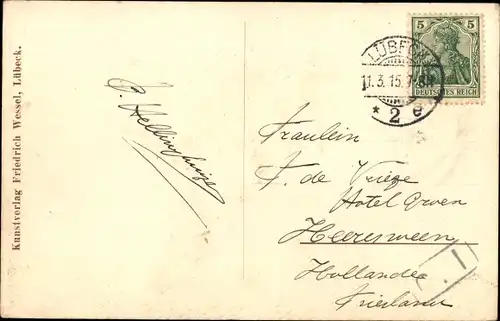 Kunstverlag Friedrich Wessel, Lübeck.
5 5
DEUTSCHES REICH
LÜBECK
11.3.15. 7-8
* 2 e
Fraulein
F. de Vriese
Hotel
Heerenveen
Hollande
Friesland